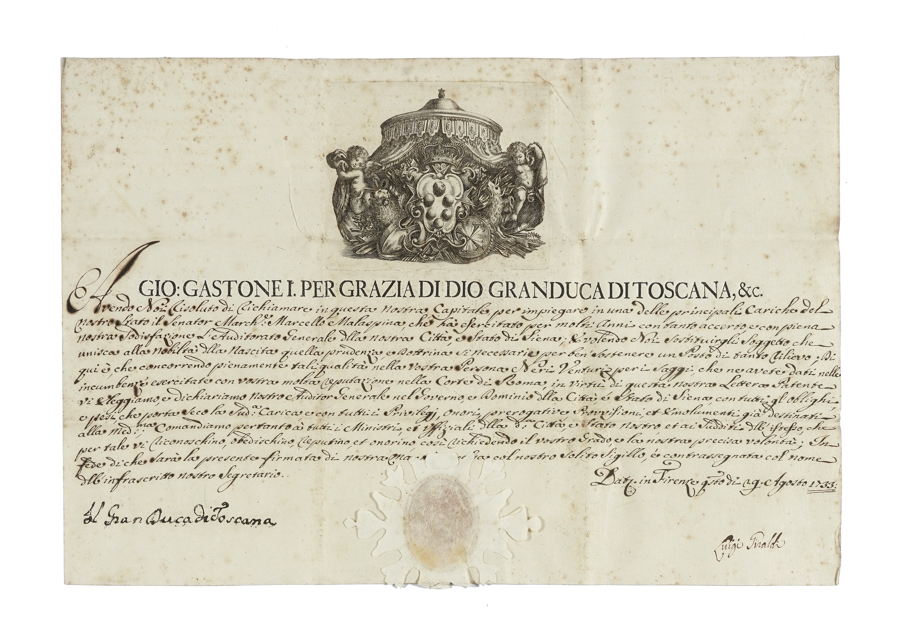 GIO: GASTONE I. PER GRAZIA DI DIO GRANDUCA DI TOSCANA, &c.
Avendo Noi Risoluto di Richiamare in questa nostra Capitale per impiegare in una delle principali Cariche del
nostro Stato il Senator March.e Marcello Malaspina, che hà esercitato per molti Anni con tanto accerto e con piena
nostra Sodisfazione L'Auditorato Generale dlla nostra Città e Stato di Siena, E volendo Noi Sostituirgli Soggetto che
unisca alla Nobiltà dlla Nascita quella prudenza e Dottrina si necessarie per ben Sostenere un Posto di tanto Rilievo, Di
qui è, che concorrendo pienamente tali qualità nella Vostra Persona Neri Venturi e per i Saggi, che ne avete dati nelle
incumbenze esercitate con vostra molta Reputazione nella Corte di Roma, in Virtù di questa nostra Lettera Patente
Vi Eleggiamo, e dichiariamo Nostro Auditor Generale nel Governo e Dominio dlla Città, e Stato di Siena con tutti gl'obblighi
e pesi, che porta Seco la Sud.a Carica e con tutti i Privilegj, onori, prerogative Provvisioni, et Emolumenti già destinati
alla med:ma Comandiamo pertanto à tutti i Ministri, et Uffiziali dlla Città e Stato nostro et ai Sudditi dll'istesso, che
per tale vi Riconoschino, obedischino, Reputino et onorino così Richiedendo il vostro Grado, e la nostra precisa volontà; In
fede di che Sarà la presente firmata di nostra col nostro Solito Sigillo, e contrassegnata col nome
dll'infrascritto nostro Segretario.
Dat. in Firenze q.sto dì 29. Agosto 1733.
Il Gran Duca di Toscana
Luigi